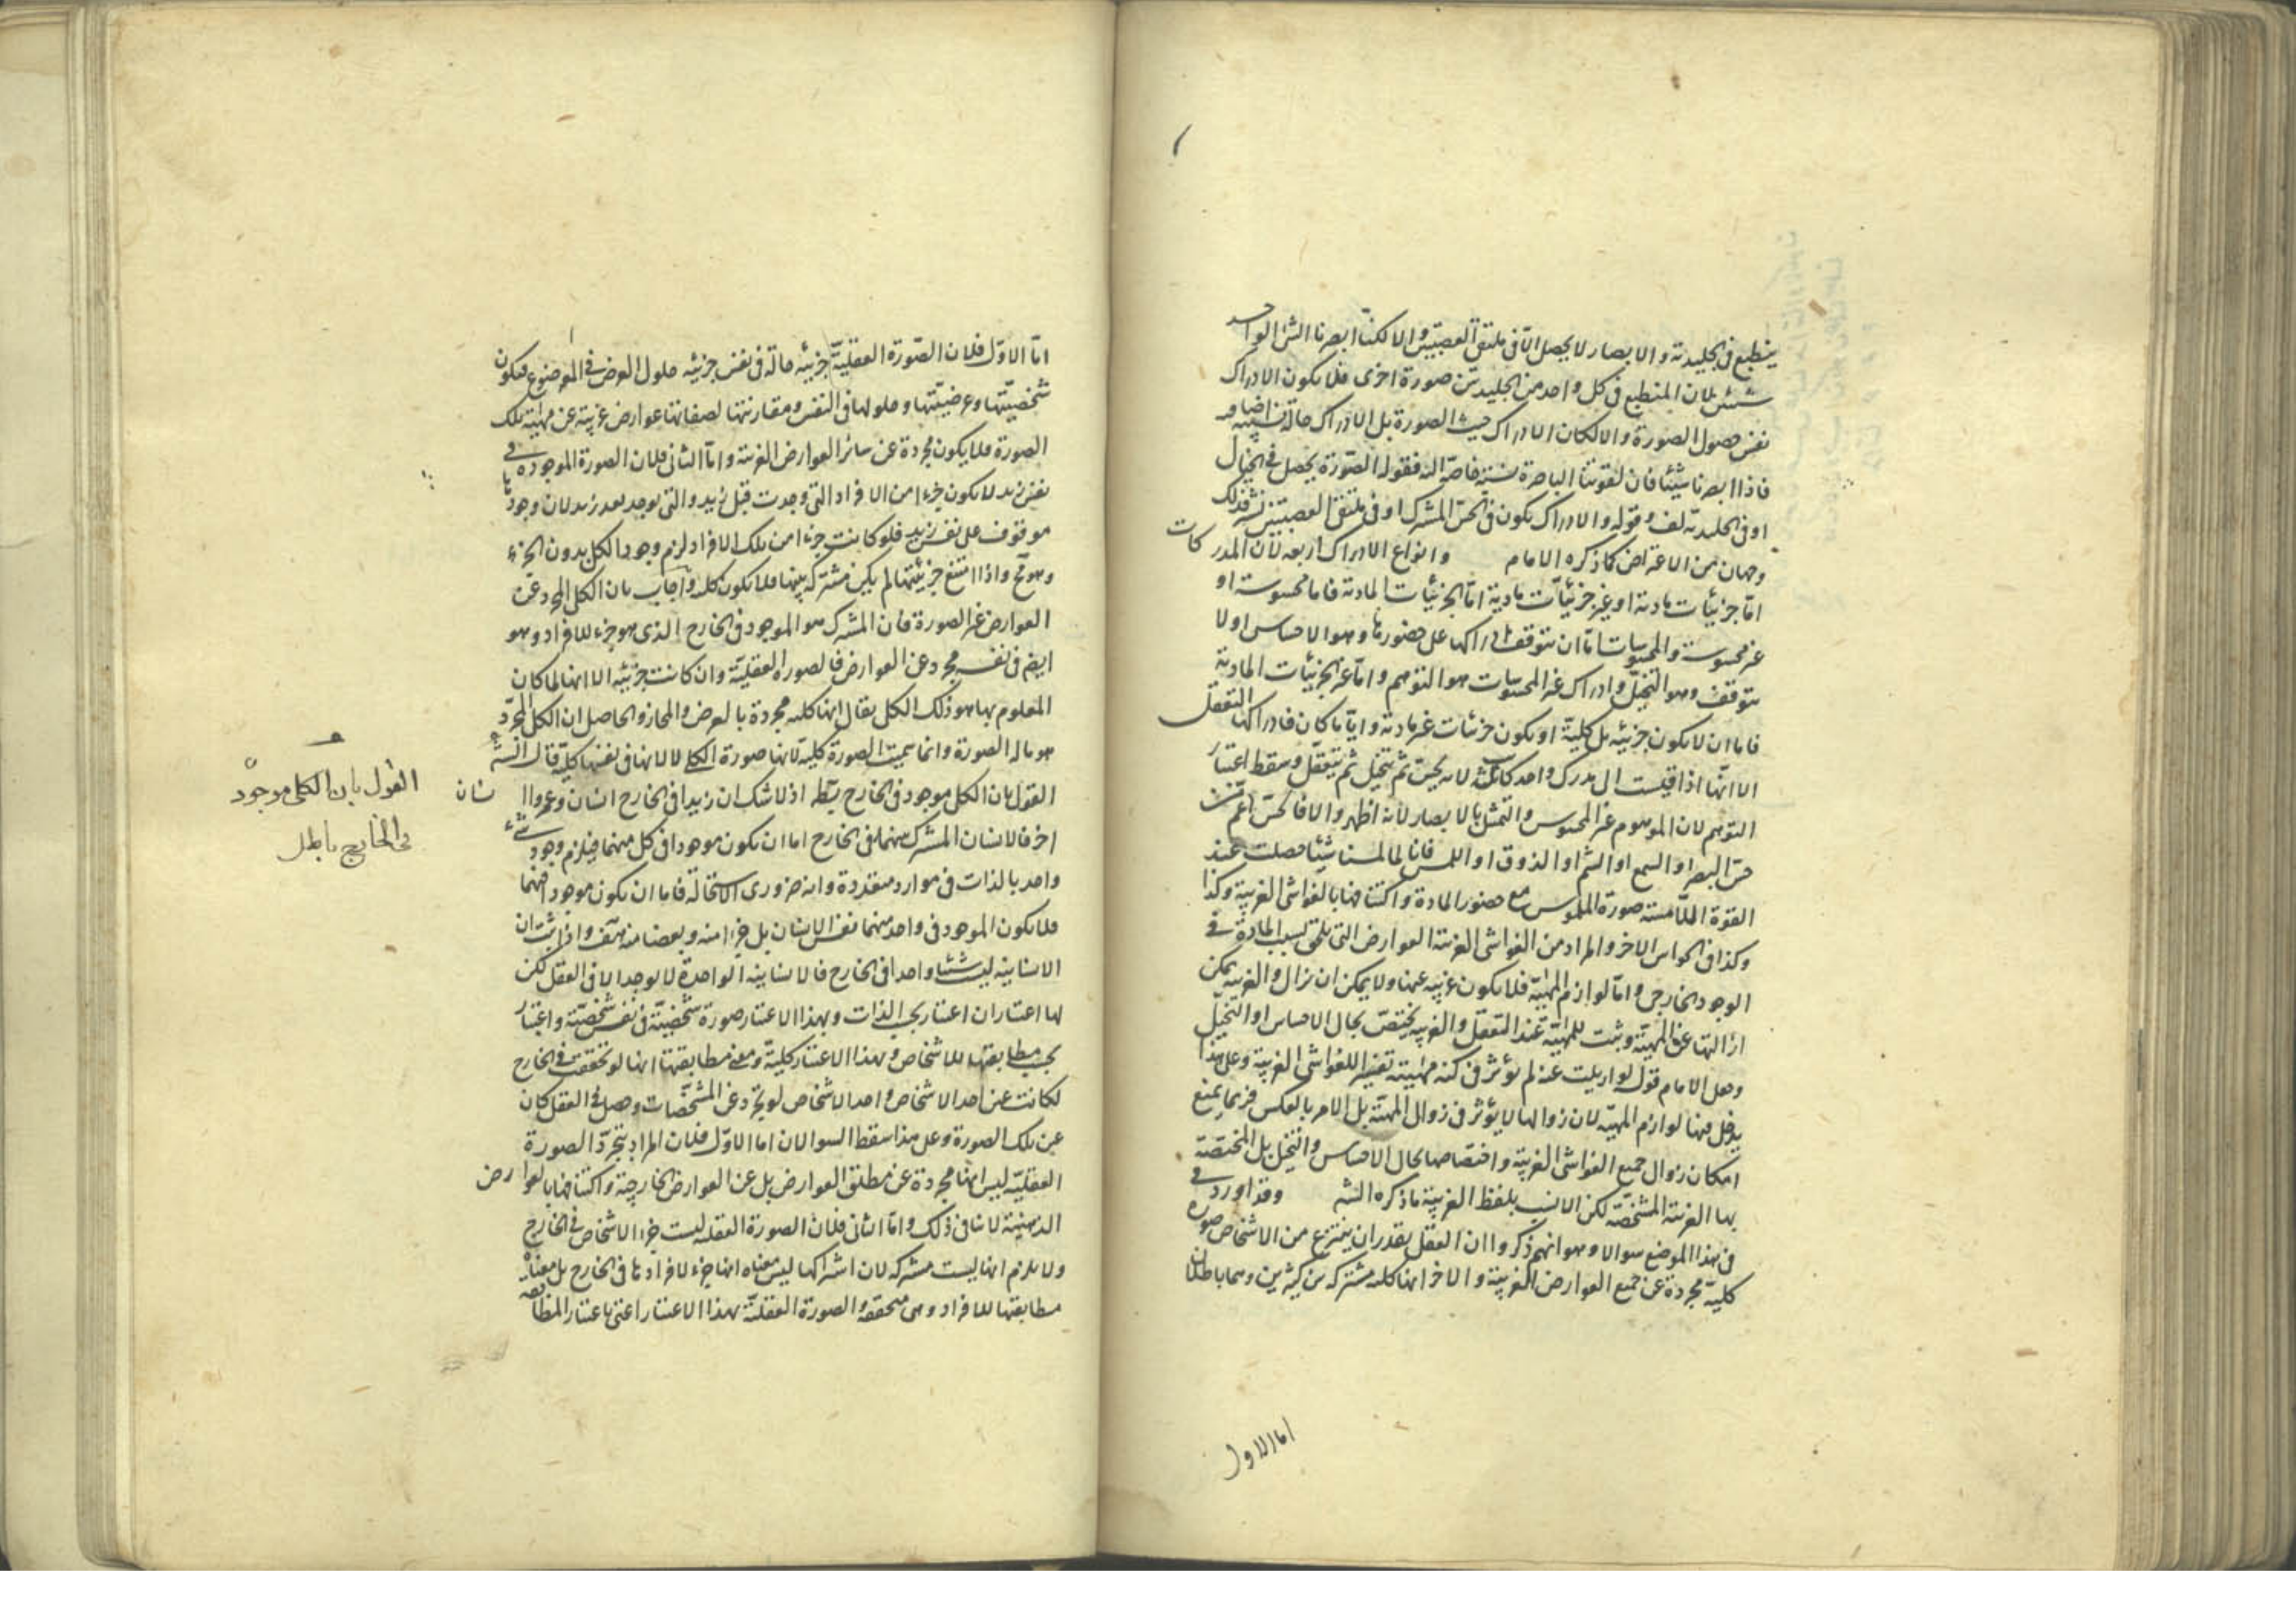 ينطبع فى الجليدية والابصار لا يحصل الا فى ملتقى العصبتين والا لكنا ابصرنا الشئ الواحد
شيئين لان المنطبع فى كل واحد من الجليديتين صورة اخرى فلا يكون الادراك
نفس حصول الصورة والا لكان الادراك حيث الصورة بل الادراك حالة نسبية اضافية
فاذا ابصرنا شيئا فان لقوتنا الباصرة نسبة خاصة اليه فقوله الصورة يحصل فى الخيال
او فى الجليدية لف وقوله والادراك يكون فى الحس المشترك او فى ملتقى العصبتين نشر فذلك
وجهان من الاعتراض كما ذكره الامام وانواع الادراك اربعة لان المدركات
اما جزئيات مادية او غير جزئيات مادية اما الجزئيات المادية فاما محسوسة او
غير محسوسة والمحسوسات اما ان يتوقف ادراكها على حضورها وهو الاحساس او لا
يتوقف وهو التخيل وادراك غير المحسوسات هو التوهم واما غير الجزئيات المادية
فاما ان لا يكون جزئية بل كلية او يكون جزئيات غير مادية وايا ما كان فادراكها التعقل
الا انها اذا قيست الى مدرك واحد كانت ثلثة لانه يحس ثم يتخيل ثم يتعقل وسقط اعتبار
التوهم لان الموهوم غير المحسوس والتمثل بالابصار لانه اظهر والا فالحس اعم من
حس البصر او السمع او الشم او الذوق او اللمس فانا لما لمسنا شيئا حصلت عند
القوة اللامسة صورة الملموس مع حضور المادة واكتنافها بالغواشى الغريبة وكذا
وكذا فى الحواس الاخر والمراد من الغواشى الغريبة العوارض التى يلحق بسبب المادة فى
الوجود الخارجى واما لوازم المهية فلا يكون غريبة عنها ولا يمكن ان يزال والغريبة يمكن
ازالتها عن المهية وثبت للمهية عند التعقل والغريبة يختص بحال الاحساس او التخيل
وجعل الامام قوله لو ازيلت عنه لم يؤثر فى كنه مهيته تفسيرا للغواشى الغريبة وعلى هذا
يدخل فيها لوازم المهية لان زوالها لا يؤثر فى زوال المهية بل الامر بالعكس فربما يمنع
امكان زوال جميع الغواشى الغريبة واختصاصها بحال الاحساس والتخيل بل المختصة
بها الغريبة المشخصة لكن الانسب بلفظ الغريبة ما ذكره الشه وقد اورد فى
فى هذا الموضع سوالا وهو انهم ذكروا ان العقل يقدر ان ينتزع من الاشخاص صورة
كلية مجردة عن جميع العوارض الغريبة والاخر انها كلية مشتركة بين كثيرين وهما باطلان
اما الاول
اما الاول فلان الصورة العقلية جزئية حالة فى نفس جزئية حلول العرض فى الموضوع فيكون
شخصيتها وعرضيتها وحلولها فى النفس ومقارنتها لصفاتها عوارض غريبة عن مهية تلك
الصورة فلا يكون مجردة عن سائر العوارض الغريبة واما الثانى فلان الصورة الموجودة فى
نفس زيد لا يكون جزءا من الافراد التى وجدت قبل زيد والتى يوجد بعد زيد لان وجودها
موقوف على نفس زيد فلو كانت جزءا من تلك الافراد لزم وجود الكل بدون الجزء
وهو مح واذا امتنع جزئيتها لم يكن مشتركة بينها فلا يكون كلية واجاب بان الكلى المجرد عن
العوارض غير الصورة فان المشترك هو الموجود فى الخارج الذى هو جزء للافراد وهو
ايضا فى نفسه مجرد عن العوارض فالصورة العقلية وان كانت جزئية الا انها لما كان
المعلوم بها هو ذلك الكلى يقال انها كلية مجردة بالعرض والمجاز والحاصل ان الكلى المجرد
هو ماله الصورة وانما سميت الصورة كلية لانها صورة الكلى لا لانها فى نفسها كلية قال الشه
القول بان الكلى موجود فى الخارج بط اذ لا شك ان زيدا فى الخارج انسان وعمروا انسان
اخر فالانسان المشترك بينهما فى الخارج اما ان يكون موجودا فى كل منهما فيلزم وجود شئ
واحد بالذات فى موارد متعددة وانه ضرورى الاستحالة فاما ان يكون موجودا فيهما
فلا يكون الموجود فى واحد منهما نفس الانسان بل جزءا منه وبعضا منه هف واذا ثبت ان
الانسانية ليست شيئا واحدا فى الخارج فالانسانية الواحدة لا يوجد الا فى العقل لكن
لها اعتباران اعتبار بحسب الذات وبهذا الاعتبار صورة شخصية فى نفس شخصية واعتبار
بحسب مطابقتها للاشخاص وبهذا الاعتبار كلية ومعنى مطابقتها انها لو تحققت فى الخارج
لكانت عين احد الاشخاص واحد الاشخاص لو تجرد عن المشخصات وحصل فى العقل كان
عين تلك الصورة وعلى هذا سقط السوالان اما الاول فلان المراد بتجرد الصورة
العقلية ليس انها مجردة عن مطلق العوارض بل عن العوارض الخارجية واكتنافها بالعوارض
الذهنية لا ينافى ذلك واما الثانى فلان الصورة العقلية ليست جزء الاشخاص فى الخارج
ولا يلزم انها ليست مشتركة لان اشتراكها ليس معناه انها جزء لافرادها فى الخارج بل معناه
مطابقتها للافراد وهى متحققة والصورة العقلية بهذا الاعتبار اعنى باعتبار المطابقة
القول بان الكلى موجود
فى الخارج باطل